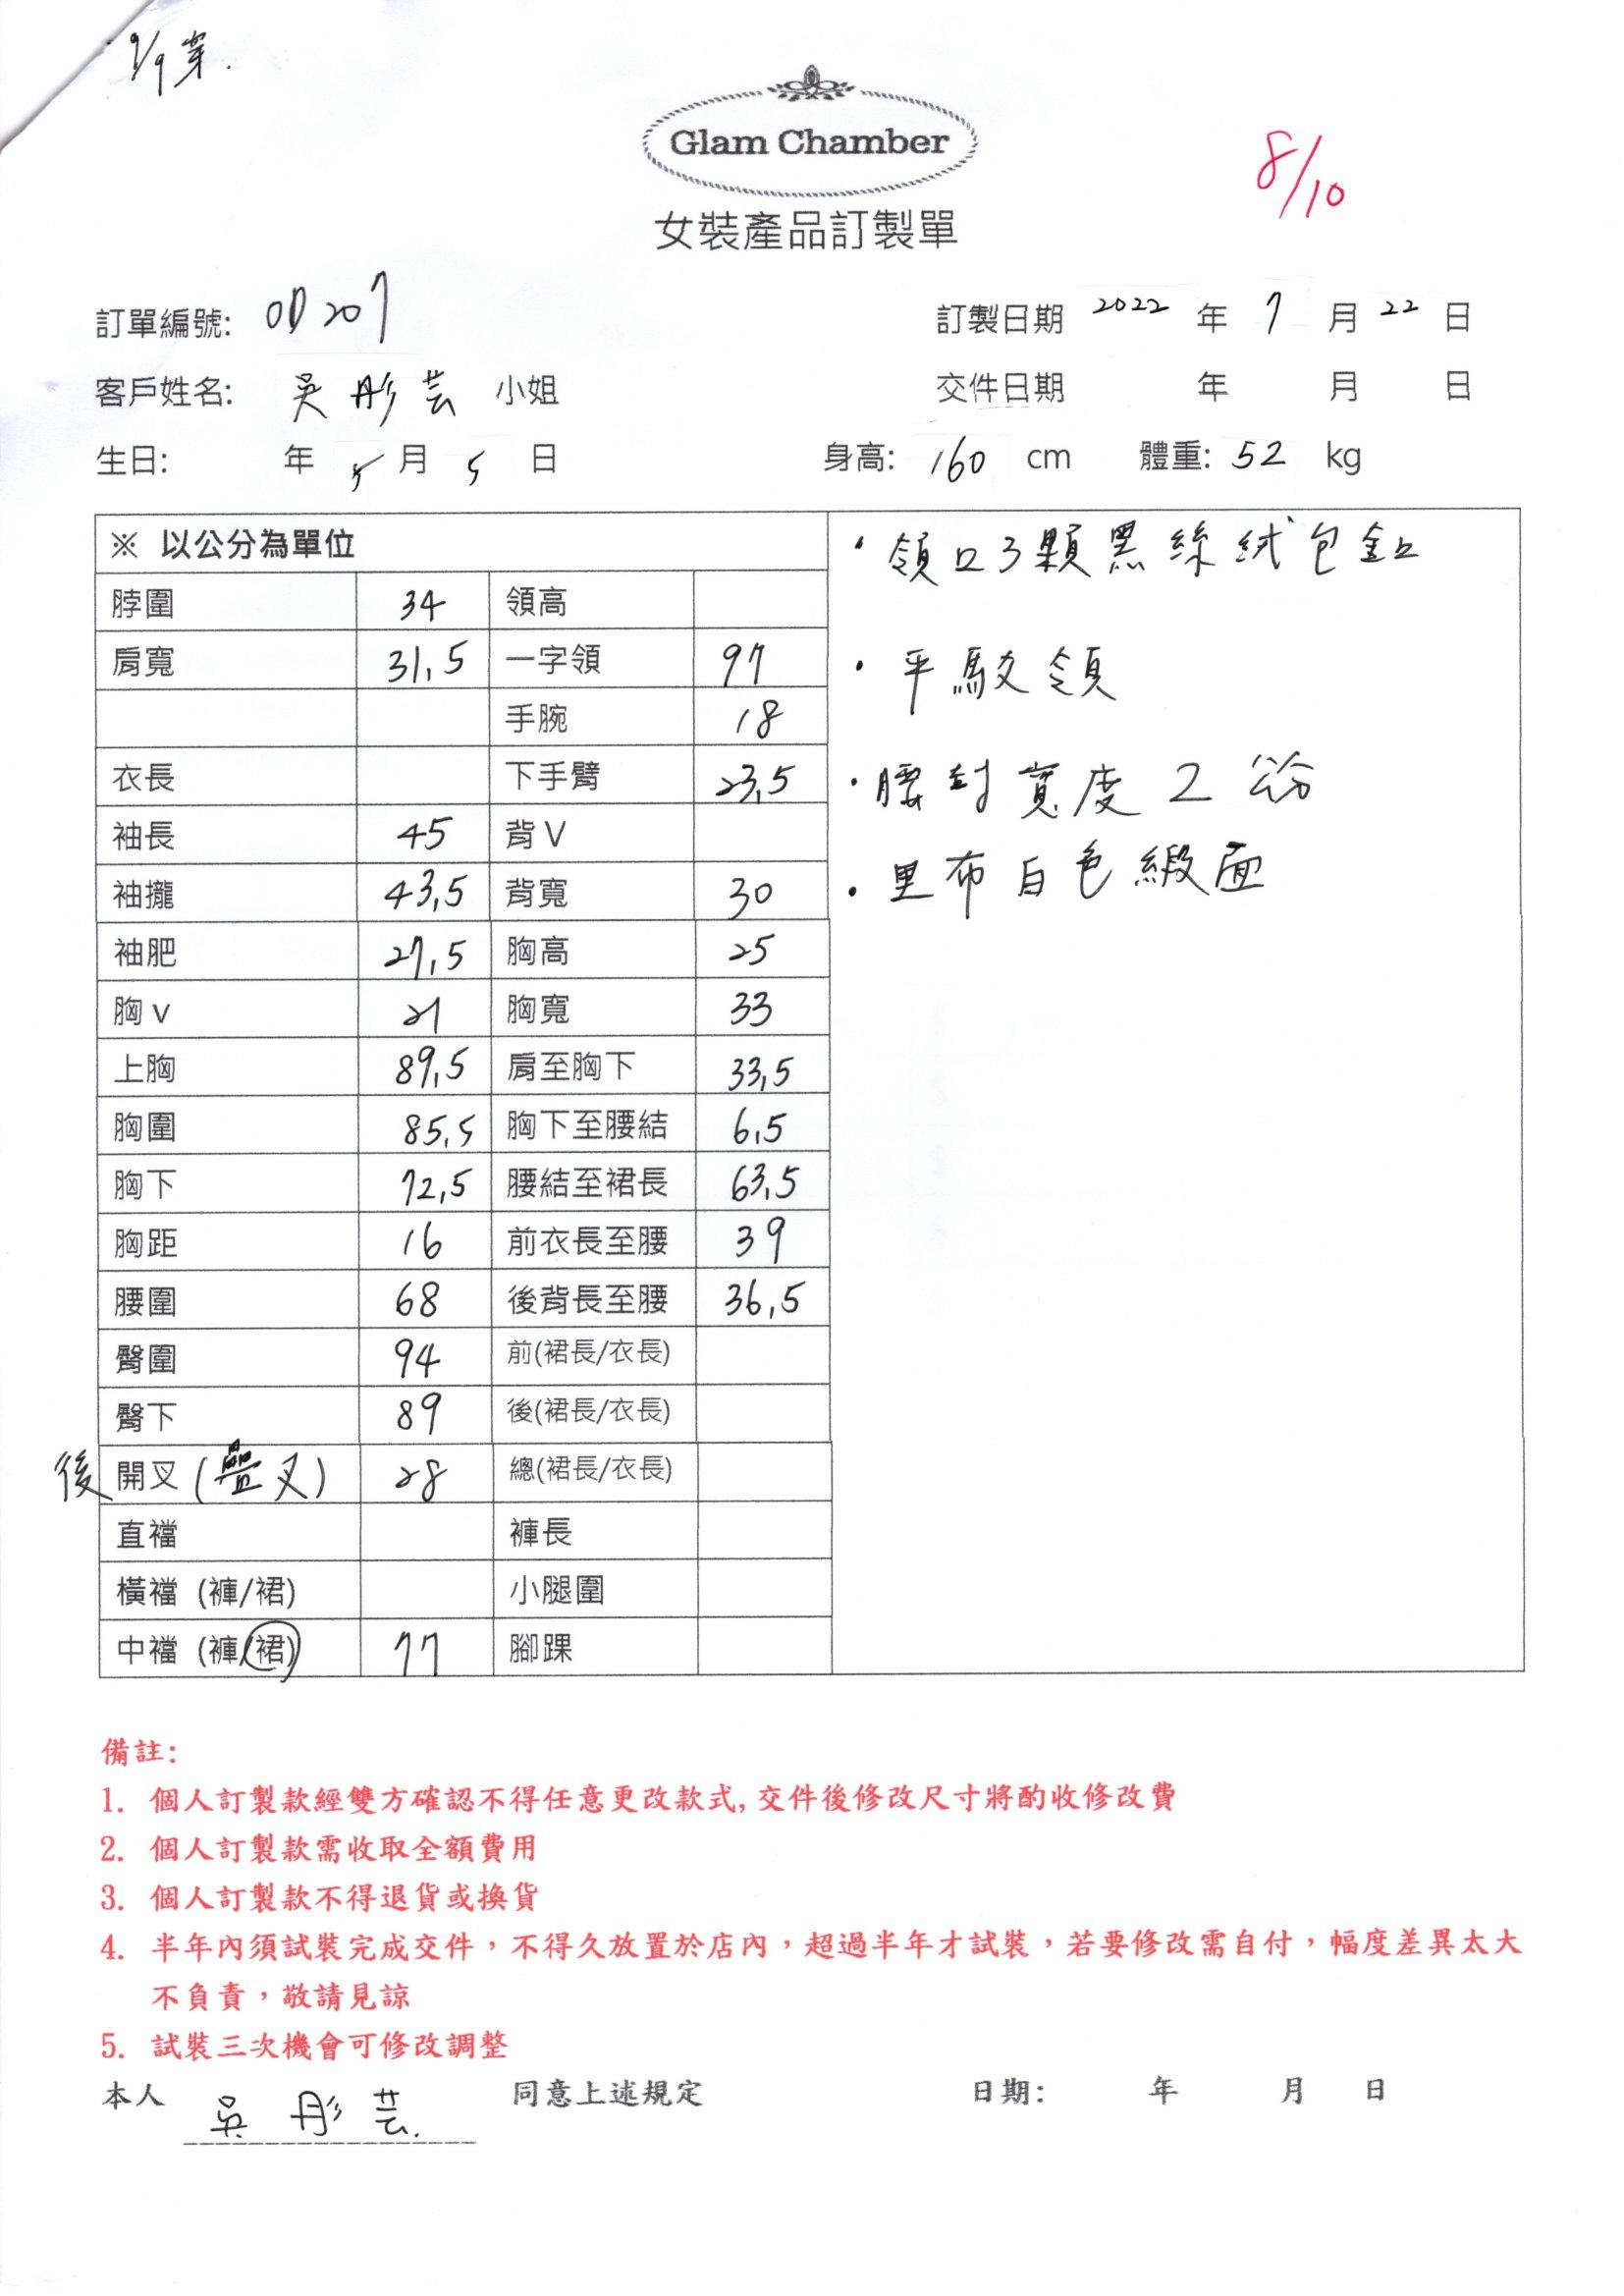 9/9 穿.
Glam Chamber
8/10
女裝產品訂製單
訂單編號: OD207 訂製日期 2022 年 7 月 22 日
客戶姓名: 吳彤芸 小姐 交件日期 年 月 日
生日: 年 5 月 5 日 身高: 160 cm 體重: 52 kg
※ 以公分為單位
脖圍 34 領高
肩寬 31,5 一字領 97
手腕 18
衣長 下手臂 23,5
袖長 45 背V
袖攏 43,5 背寬 30
袖肥 27,5 胸高 25
胸v 21 胸寬 33
上胸 89,5 肩至胸下 33,5
胸圍 85,5 胸下至腰結 6,5
胸下 72,5 腰結至裙長 63,5
胸距 16 前衣長至腰 39
腰圍 68 後背長至腰 36,5
臀圍 94 前(裙長/衣長)
臀下 89 後(裙長/衣長)
後 開叉 (疊叉) 28 總(裙長/衣長)
直襠 褲長
橫襠 (褲/裙) 小腿圍
中襠 (褲/裙) 77 腳踝
・領口3顆黑絲絨包釦
・平駁領
・腰封寬度2公分
・里布白色緞面
備註:
1. 個人訂製款經雙方確認不得任意更改款式, 交件後修改尺寸將酌收修改費
2. 個人訂製款需收取全額費用
3. 個人訂製款不得退貨或換貨
4. 半年內須試裝完成交件，不得久放置於店內，超過半年才試裝，若要修改需自付，幅度差異太大
不負責，敬請見諒
5. 試裝三次機會可修改調整
本人 吳彤芸. 同意上述規定 日期: 年 月 日